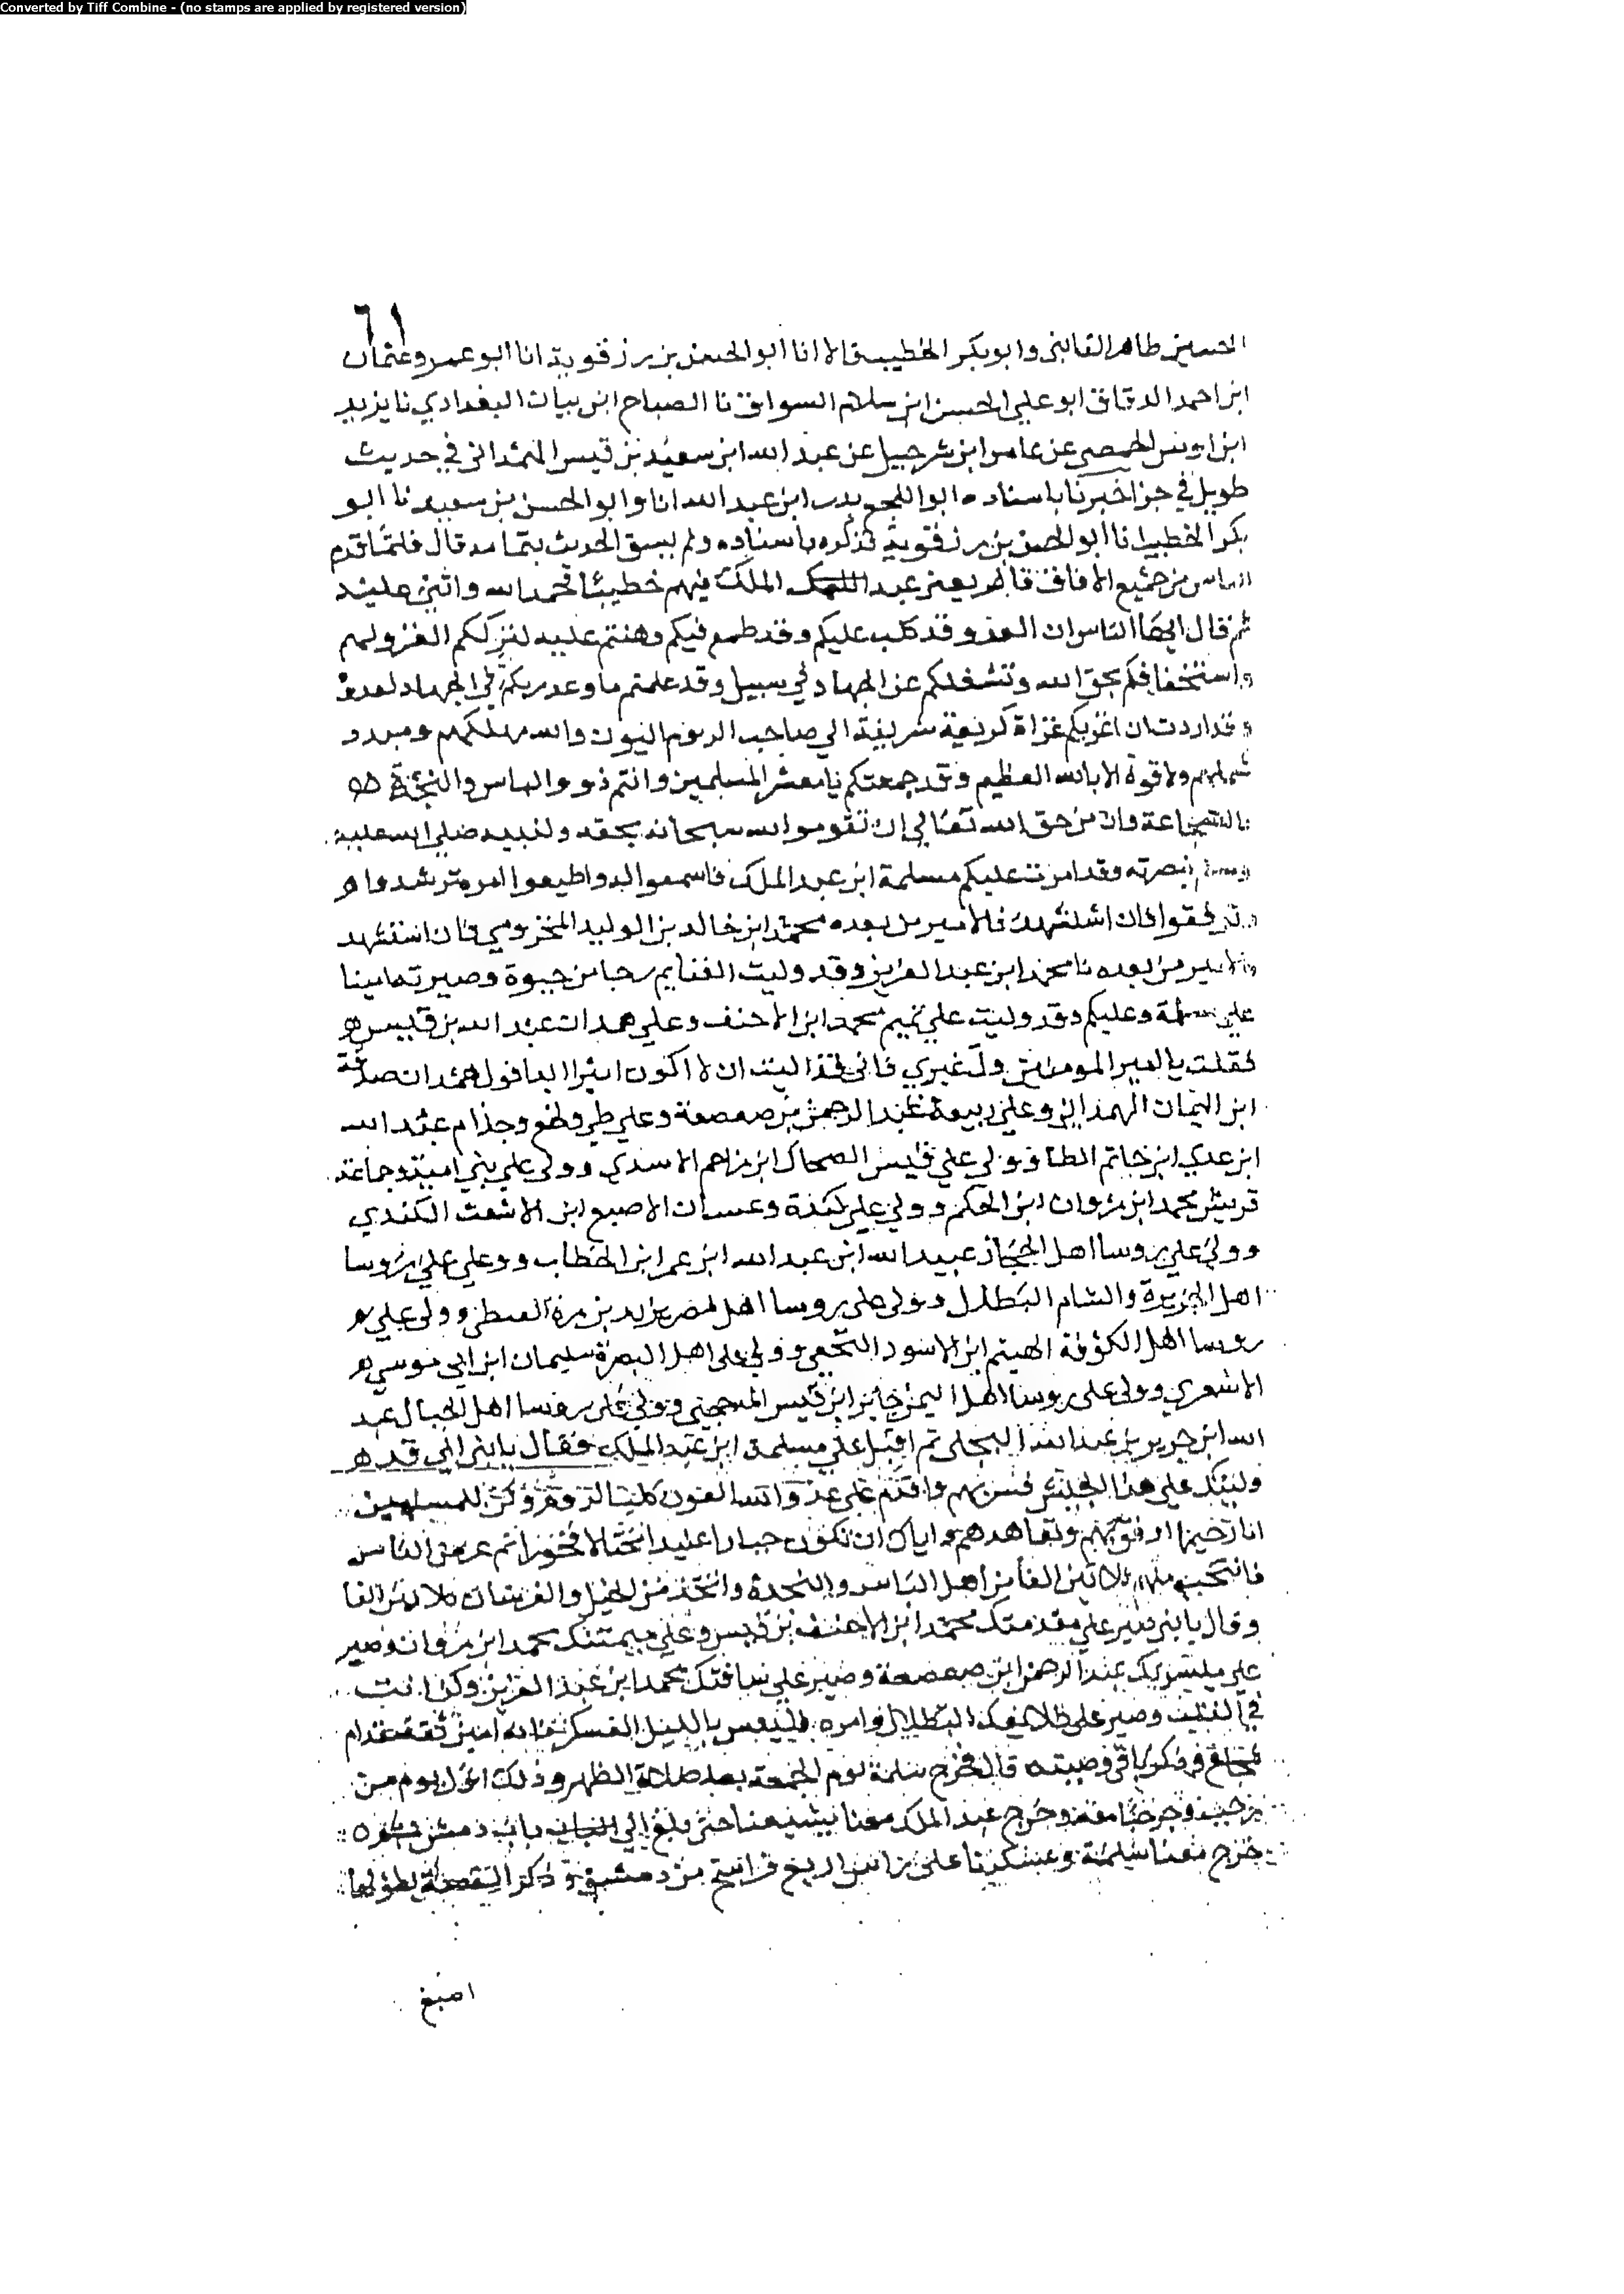 Converted by Tiff Combine - (no stamps are applied by registered version)
٦١
الحسين طاهر القايني وابو بكر الخطيب قالا انا ابو الحسن بن رزقويه انا ابو عمرو عثمان
ابن احمد الدقاق ابو علي الحسن ابن سلام السواق نا الصباح ابن بيان البغدادي نا يزيد
ابن اوس الحمصي عن عامر ابن شرحبيل عن عبد الله ابن سعيد بن قيس الهمداني في حديث
طويل في جزا اخبرنا باسناده ابو النجم بدر ابن عبد الله انا وابو الحسن بن سعيد نا ابو
بكر الخطيب انا ابو الحسن بن رزقويه فذكره باسناده ولم يسق الحديث بتمامه قال فلما قدم
الناس من جميع الافاق قام يعني عبد الملك فيهم خطيبا فحمد الله واثنى عليه
ثم قال ايها الناس ان العدو قد كلب عليكم وقد طمع فيكم وهنتم عليه لترككم الغزو لهم
واستخفافكم بحق الله وتشغلكم عن الجهاد في سبيل وقد علمتم ما وعد ربكم في الجهاد لعدوه
وقد اردت ان اغزيكم غزاة كريمة شريفة الي صاحب الروم اليون والله مهلكهم ومبدد
شملهم ولا قوة الا بالله العظيم وقد جمعتكم يا معشر المسلمين وانتم ذوو الباس والنجدة
والشجاعة وان من حق الله تعالي ان تقوموا لله سبحانه بحقه ولنبيه صلي الله عليه
وسلم بنصرته وقد امرت عليكم مسلمة ابن عبد الملك فاسمعوا له واطيعوا امره ترشدوا
وتوفقوا فان استشهد فالامير من بعده محمد ابن خالد بن الوليد المخزومي فان استشهد
فالامير من بعده نا محمد ابن عبد العزيز وقد وليت الغنايم رجا بن حيوة وصيرته امينا
علي مسلمة وعليكم وقد وليت علي تميم محمد ابن الاحنف وعلي همدان عبد الله بن قيس
فقلت يا امير المومنين ول غيري فاني قد اليت ان لا اكون اميرا ابدا فولي همدان صدقة
ابن اليمان الهمداني وعلي ربيعة عبد الرحمن بن صعصعة وعلي طي ولخم وجذام عبد الله
ابن عدي ابن حاتم الطاي وولي علي قيس الضحاك ابن مزاحم الاسدي وولي علي بني امية وجماعة
قريش محمد ابن مروان ابن الحكم وولي علي كندة وغسان الاصبغ ابن الاشعث الكندي
وولي علي روسا اهل الحجاز عبيد الله ابن عبد الله ابن عمر ابن الخطاب وولي علي روسا
اهل الجزيرة والشام البطال وولي علي روسا اهل مصر يزيد بن مرة القبطي وولي علي
روسا اهل الكوفة الهيثم ابن الاسود النخعي وولي علي اهل البصرة سليمان ابن ابي موسي
الاشعري وولي علي روسا اهل اليمن جابر ابن قيس المذحجي وولي علي روسا اهل الجبال عبد
الله ابن جرير بن عبد الله البجلي ثم اقبل علي مسلمة ابن عبد الملك فقال يا بني اني قد
وليتك علي هذا الجيش فسر بهم واقدم علي عدو الله اليون كلب الروم وكن للمسلمين
ابا رحيما ارفق بهم وتعاهدهم واياك ان تكون جبارا عنيدا مختالا فخورا ثم عرض الناس
فانتخب منهم ثلاثين الفا من اهل الباس والنجدة واتخذ من الخيل والفرسان ثلاثين الفا
وقال يا بني صير علي مقدمتك محمد ابن الاحنف بن قيس وعلي ميمنتك محمد ابن مروان وصير
علي ميسرتك عبد الرحمن ابن صعصعة وصير علي ساقتك محمد ابن عبد العزيز وكن انت
في القلب وصير علي طلايعك البطال وامره فليعس بالليل العسكر فانه امين ثقة مقدام
شجاع وذكر باقي وصيته قال فخرج مسلمة يوم الجمعة بعد صلاة الظهر وذلك اول يوم من
رجب وخرجنا معه وخرج عبد الملك معنا يشيعنا حتى بلغ الي باب دمشق
خرج معنا مسلمة وعسكرنا علي راس اربع فراسخ من دمشق وذكر القصة بطولها
اصبغ